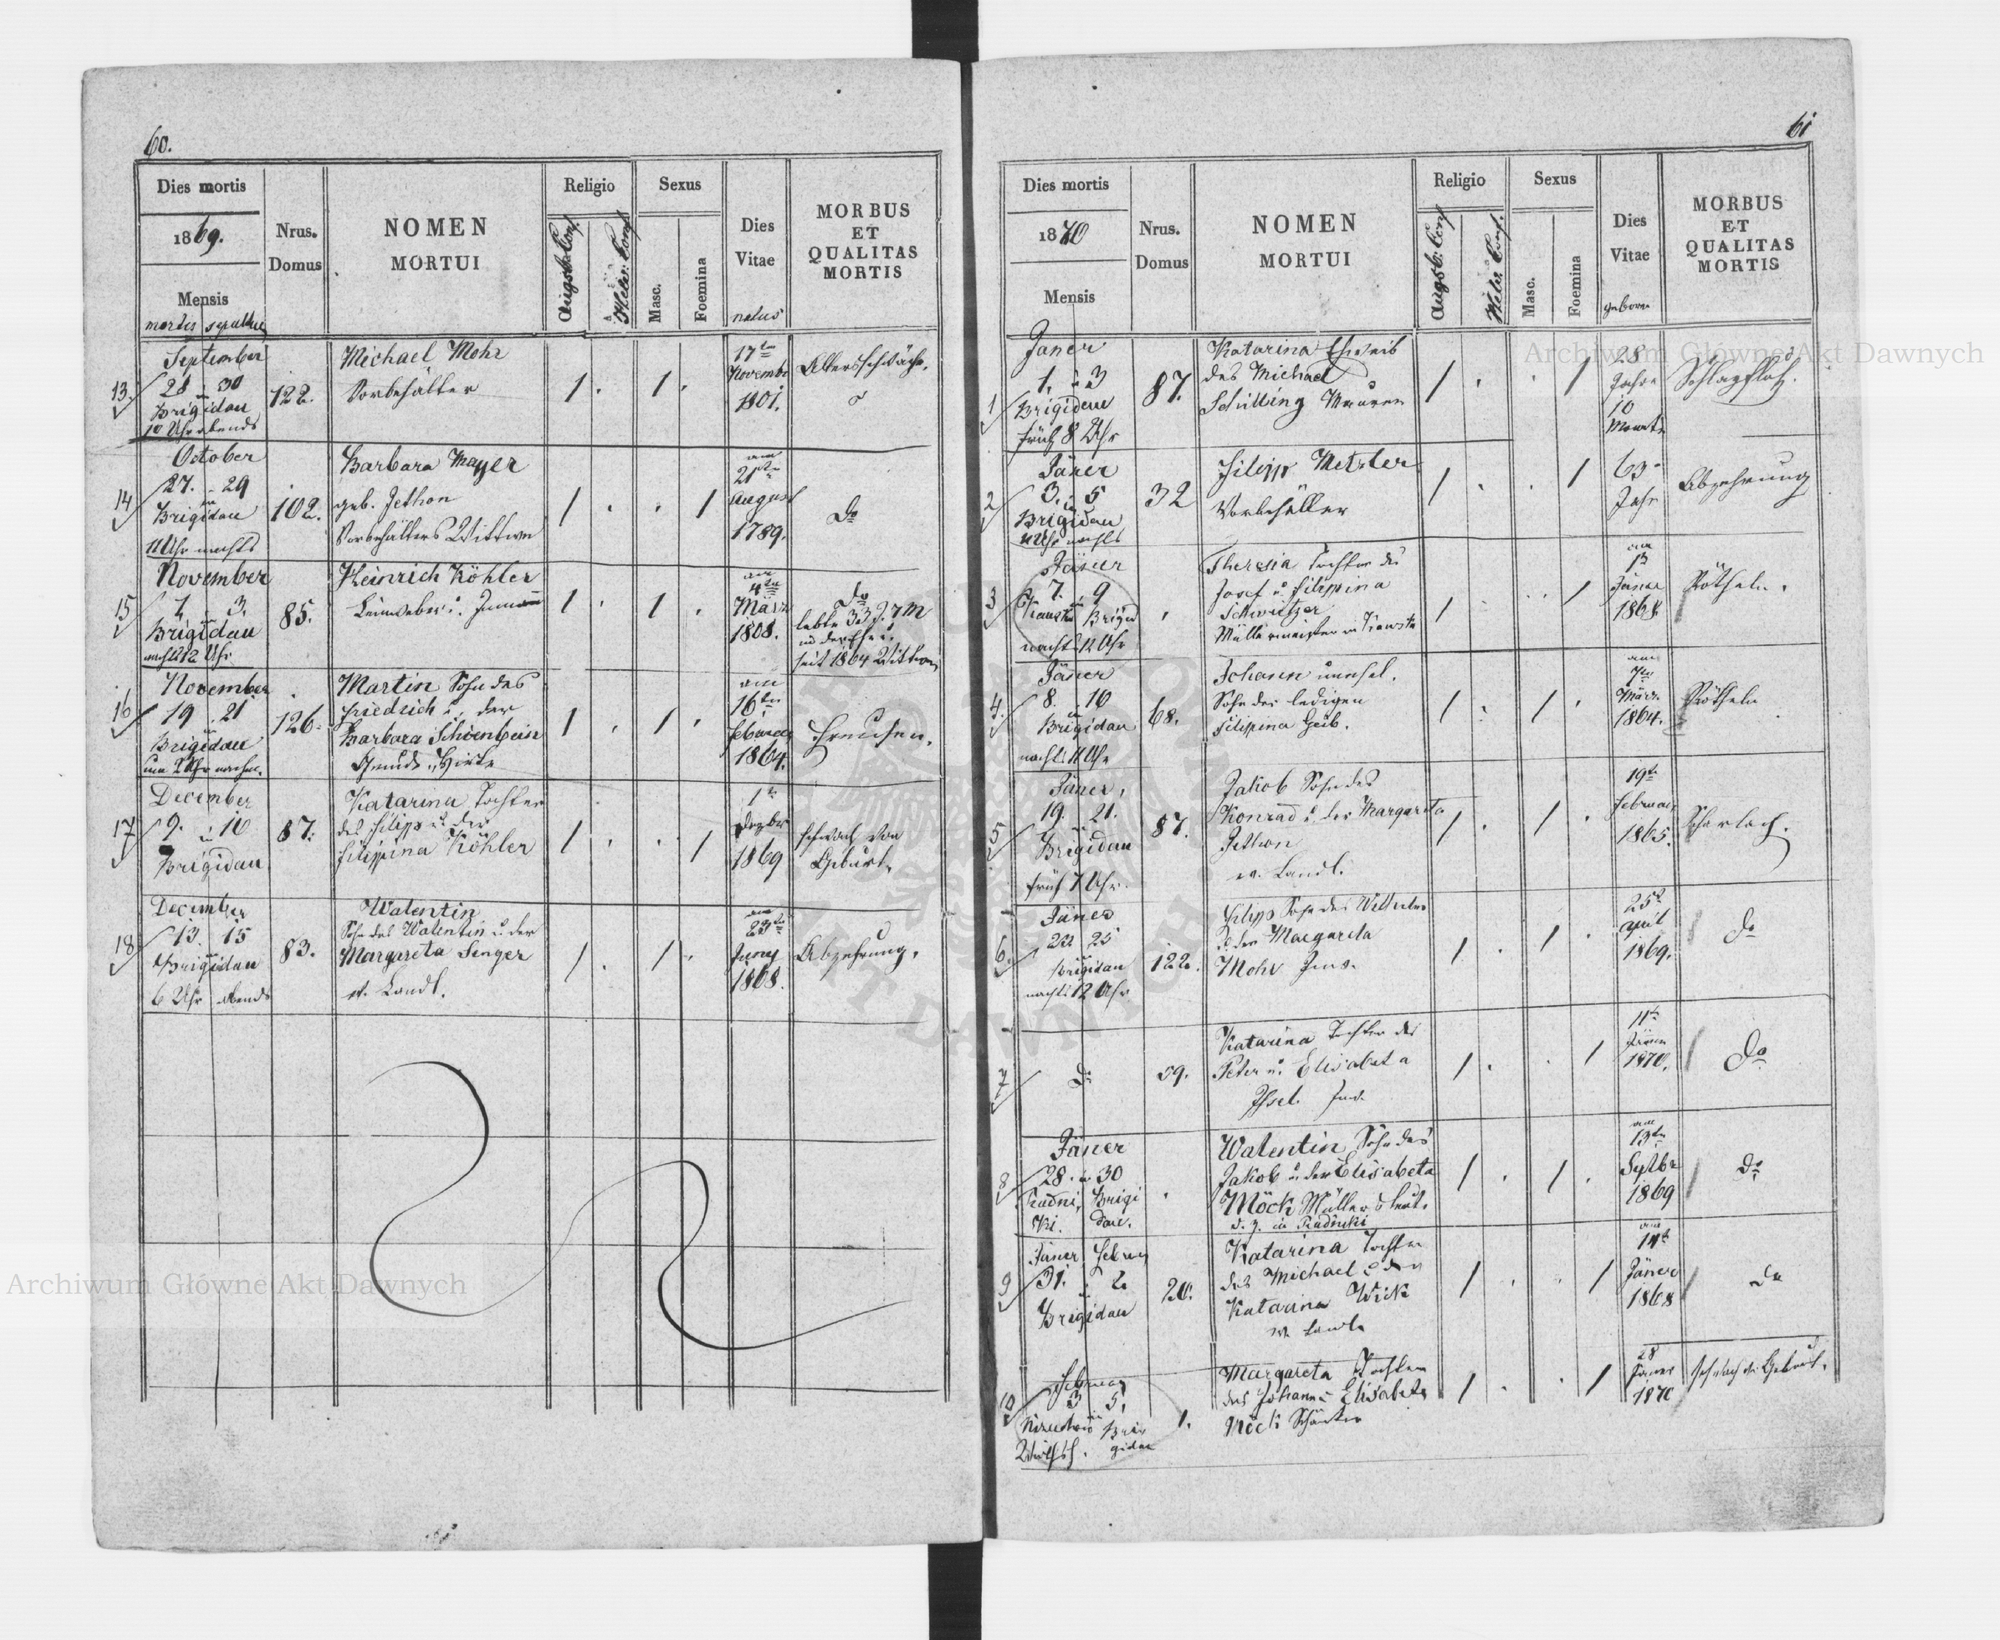 60.
Dies mortis
1869.
Mensis
mortis sepulturae
Nrus. Domus
NOMEN
MORTUI
Religio
Augsb. Conf.
Helv. Conf.
Sexus
Masc.
Foemina
Dies
Vitae
natus
MORBUS
ET
QUALITAS
MORTIS
13.
September
28 u 30
Brigidau
10 Uhr abends
122.
Michael Mohr
Vorbehälter
1
1
17ten
November
1801.
Altersschwäche.
14
October
27. u 29
Brigidau
11 Uhr nachts
102.
Barbara Mayer
geb. Jethon
Vorbehälters Wittwe
1
1
am
21ten
August
1789.
do
15
November
1. u 3.
Brigidau
nachts 12 Uhr
85.
Heinrich Köhler
Leinweber u.
1
1
am
4ten
März
1808.
do
lebte 33 J. 7 M
in der Ehe u.
seit 1864 Wittwer
16
November
19 u 21
Brigidau
um Uhr nachm.
126.
Martin Sohn des
Friedrich u. der
Barbara Schönbein
Hirte
1
1
am
16ten
Februar
1864.
17
December
9. u 10
Brigidau
87.
Katarina Tochter
des Filipp u. der
Filippina Köhler
1
1
1te
Dezbr
1869
schwach von
Geburt.
18
December
13. u 15
Brigidau
6 Uhr abends
83.
Walentin
Sohn des Walentin u der
Margareta Senger
ev. Landl.
1
1
am
23ten
Juny
1868.
Abzehrung.
61
Dies mortis
1870
Mensis
Nrus.
Domus
NOMEN
MORTUI
Religio
Augsb. Conf
Helv. Conf.
Sexus
Masc.
Foemina
Dies
Vitae
geboren
MORBUS
ET
QUALITAS
MORTIS
1
Janer
1. u 3
Brigidau
früh 8 Uhr
87.
Katarina Eheweib
des Michael
Schilling
1
1
28
Jahre
10
Monate
Schlagfluß.
2
Jäner
3. u 5
Brigidau
Uhr nachts
32
Filipp Metzler
Vorbehälter
1
1
63
Jahr
Abzehrung
3
Jäner
7. u 9
Brigid
nachts 12 Uhr
Theresia Tochter des
Josef u Filippina
Schweitzer
Müllermeister in
1
1
am
Jäner
1868
Rötheln.
4.
Jäner
8. u 10
Brigidau
nachts 11 Uhr
68.
Johann unehel.
Sohn der ledigen
Filippina Geib.
1
1
am
7ten
März
1864.
Rötheln
5
Jäner,
19. u 21.
Brigidau
früh 7 Uhr.
87.
Jakob Sohn des
Konrad u der Margareta
Jethon
ev. Landl.
1
1
19te
Februar
1865.
Scharlach.
6.
Jäner
22 u 25
Brigidau
nachts 12 Uhr
122.
Filipp Sohn des Wilhelm
u der Margareta
Mohr Inw.
1
1
25te
April
1869.
do
7
do
59.
Katarina Tochter des
Peter u. Elisabeta
Inw.
1
1
11te
Jäner
1870.
do
8
Jäner
28. u 30
Radni, Brigi
ki. dau.
Walentin Sohn des
Jakob u der Elisabeta
Möck Müllers
d. Z. in Radniki
1
1
am
13ten
Septbr
1869
do
9
Jäner Februar
31. u 2
Brigidau
20.
Katarina Tochter
des Michael u der
Katarina Wick
ev Landl
1
1
am
14te
Jäner
1868
do
10
Februar
3 u 5.
Brigidau
1.
Margareta Tochter
des Johann u Elisabeta
Möck
1
1
28
Jäner
1870
schwach von Geburt.
Archiwum Główne Akt Dawnych
Archiwum Główne Akt Dawnych